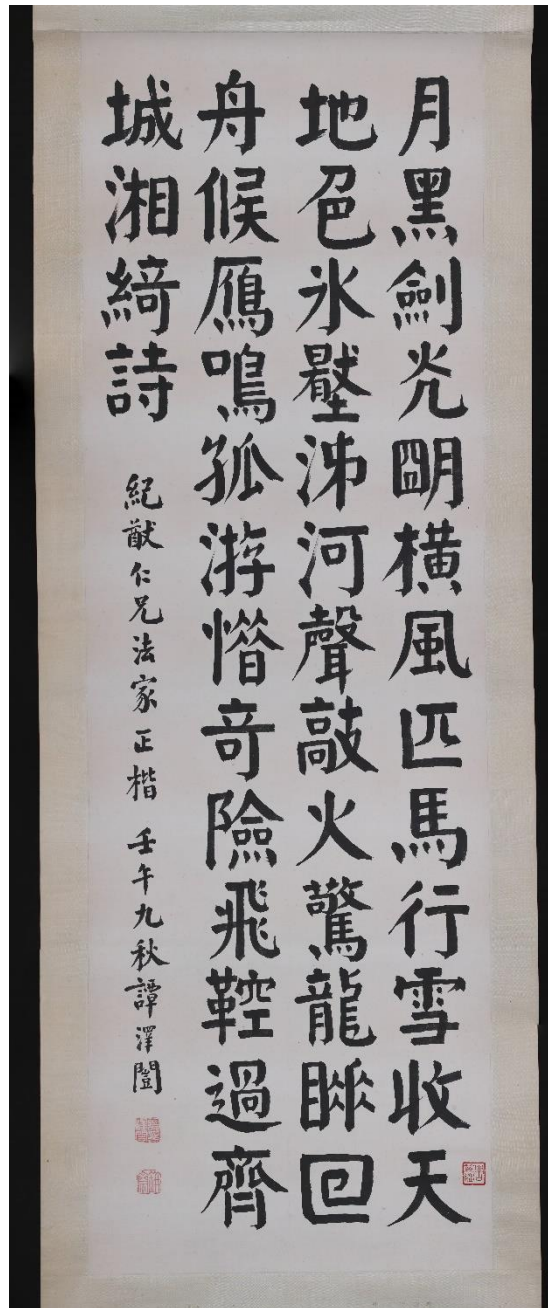 月黑劍光朙橫風匹馬行雪收天
地色冰壓泲河聲敲火驚龍睞回
舟候鴈鳴孤游憯奇險飛鞚過齊
城湘綺詩
紀猷仁兄法家正楷 壬午九秋譚澤闓